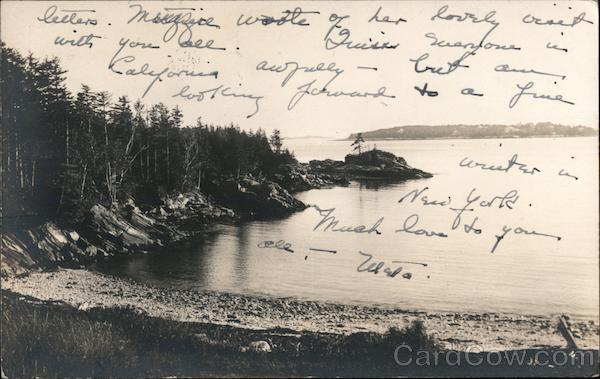 letters. Muzzie wrote of her lovely visit
with you all. I miss everyone in
California awfully — but am
looking forward to a fine
winter in
New York.
Much love to you
all, —
CardCow.com